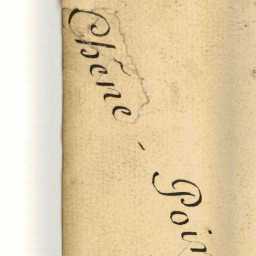 Chêne - Poin